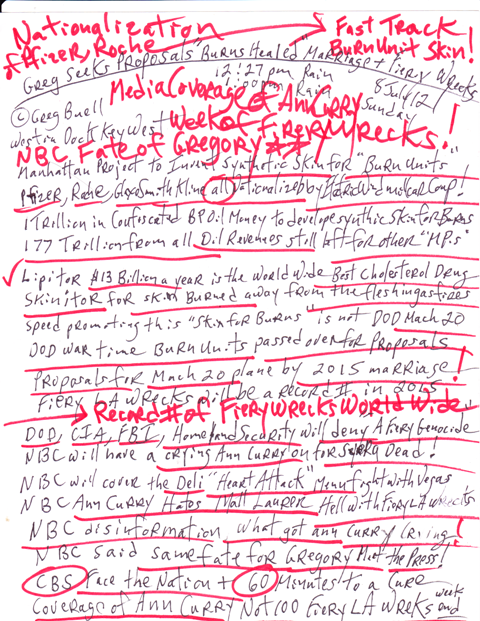 Nationalization
of Pfizer, Roche
Fast Track
Burn Unit Skin!
Greg Seeks Proposals "Burns Healed" Marriage + Fiery Wrecks
12:27 pm Rain
8 July 12
Media Coverage of Ann Curry
Sunday
© Greg Buell
Westin Dock Key West
Week of Fiery Wrecks.!
NBC Fate of Gregory
Manhattan Project to Invent Synthetic Skin for "Burn Units"
Pfizer, Roche, GlaxoSmithKline all Nationalized by
1 Trillion in Confiscated BP Oil Money to develope synthic Skin for Burns
177 Trillion from all Oil Revenues still left for other "MP's"
Lipitor $13 Billion a year is the World Wide Best Cholesterol Drug
Skinitor for skin Burned away from the flesh in gas fires
Speed promoting this "Skin for Burns" is not DOD Mach 20
DOD war time Burn Units passed over for Proposals
Proposals for Mach 20 plane by 2015 marriage!
Fiery LA Wrecks will be a record # in 2015
Record # of Fiery Wrecks World Wide
DOD, CIA, FBI, Homeland Security will deny A Fiery Genocide
NBC will have a crying Ann Curry on for Dead!
NBC will cover the Deli "Heart Attack" Menu fight with Vegas
NBC Ann Curry Hates Matt Laurer Hell with Fiery LA Wrecks
NBC disinformation, What got Ann Curry Crying!
NBC said same fate for Gregory Meet the Press!
CBS Face the Nation + 60 Minutes to a Cure
Coverage of Ann Curry Not 100 Fiery LA Wrecks week and